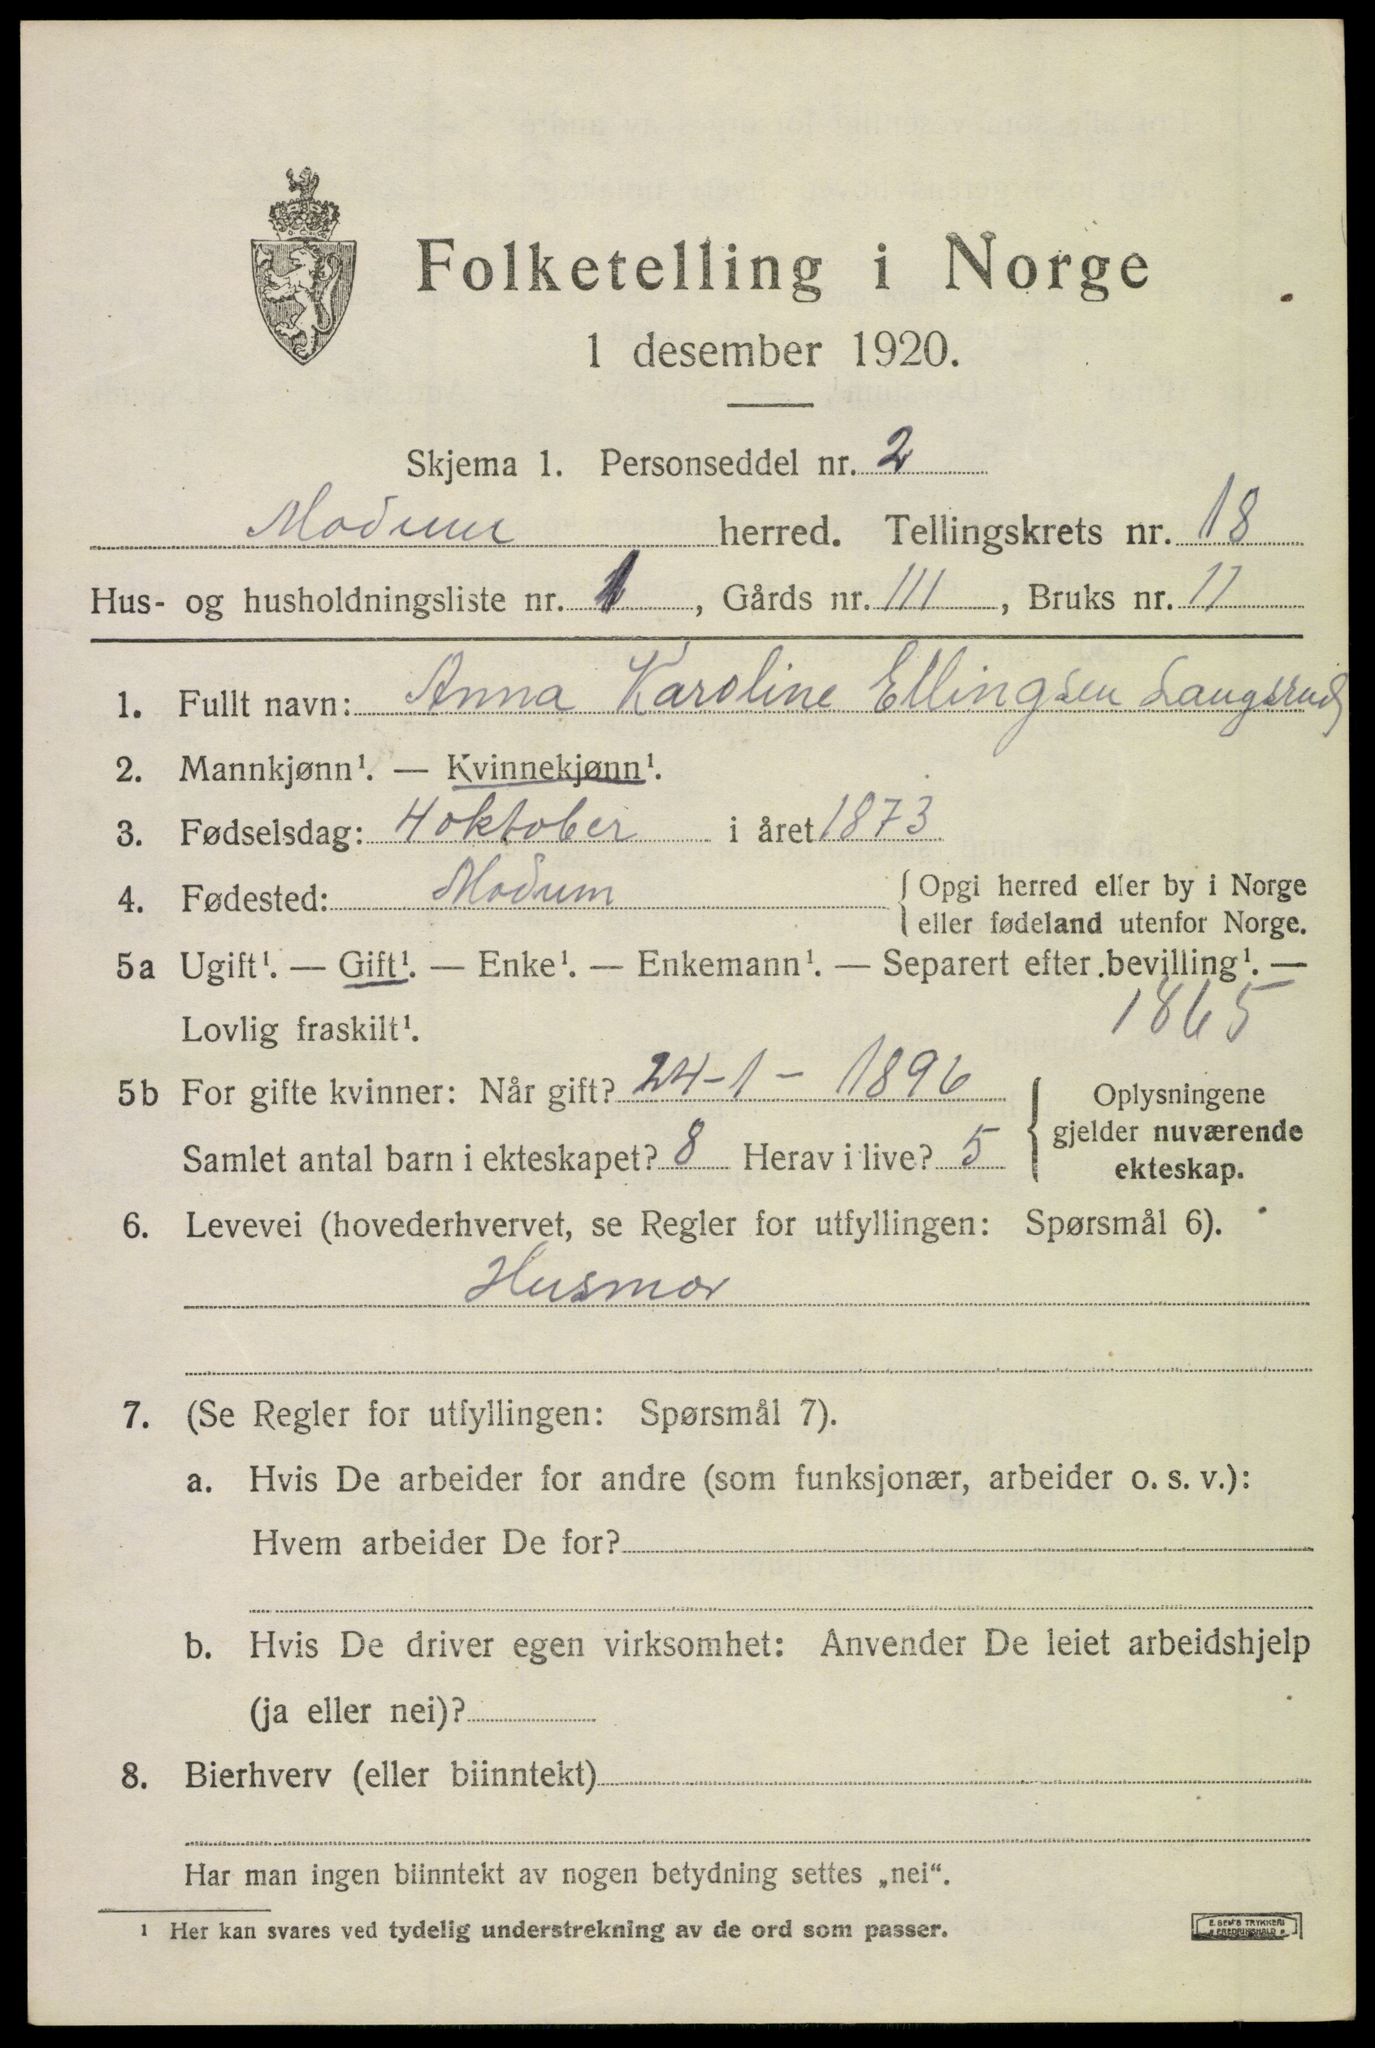 Folketelling i Norge
1 desember 1920.
Skjema 1. Personseddel nr. 2
Modum herred. Tellingskrets nr. 18
Hus- og husholdningsliste nr. 1, Gårds nr. 111, Bruks nr. 11
1. Fullt navn: Anna Karoline Ellingsen Langsrud
2. Mannkjønn¹. — Kvinnekjønn¹.
3. Fødselsdag: 4 oktober i året 1873
4. Fødested: Modum { Opgi herred eller by i Norge
eller fødeland utenfor Norge.
5a Ugift¹. — Gift¹. — Enke¹. — Enkemann¹. — Separert efter bevilling¹. —
Lovlig fraskilt¹. 1865
5b For gifte kvinner: Når gift? 24-1-1896 { Oplysningene
gjelder nuværende
Samlet antal barn i ekteskapet? 8 Herav i live? 5
ekteskap.
6. Levevei (hovederhvervet, se Regler for utfyllingen: Spørsmål 6).
Husmor
7. (Se Regler for utfyllingen: Spørsmål 7).
a. Hvis De arbeider for andre (som funksjonær, arbeider o. s. v.):
Hvem arbeider De for?
b. Hvis De driver egen virksomhet: Anvender De leiet arbeidshjelp
(ja eller nei)?
8. Bierhverv (eller biinntekt)
Har man ingen biinntekt av nogen betydning settes „nei“.
¹ Her kan svares ved tydelig understrekning av de ord som passer.
E. SEM'S TRYKKERI
FREDRIKSHALD